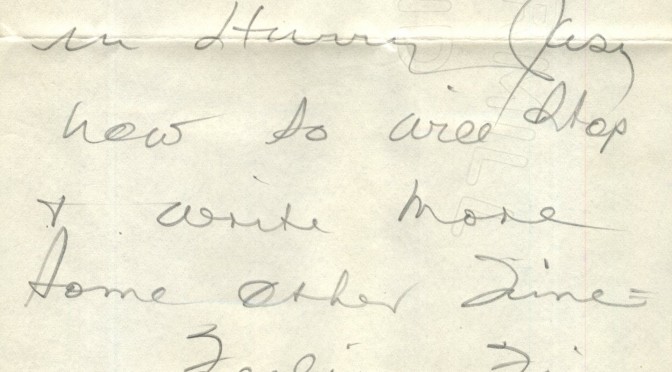 in Hurry
now so will Stop
+ write more
some other Time=